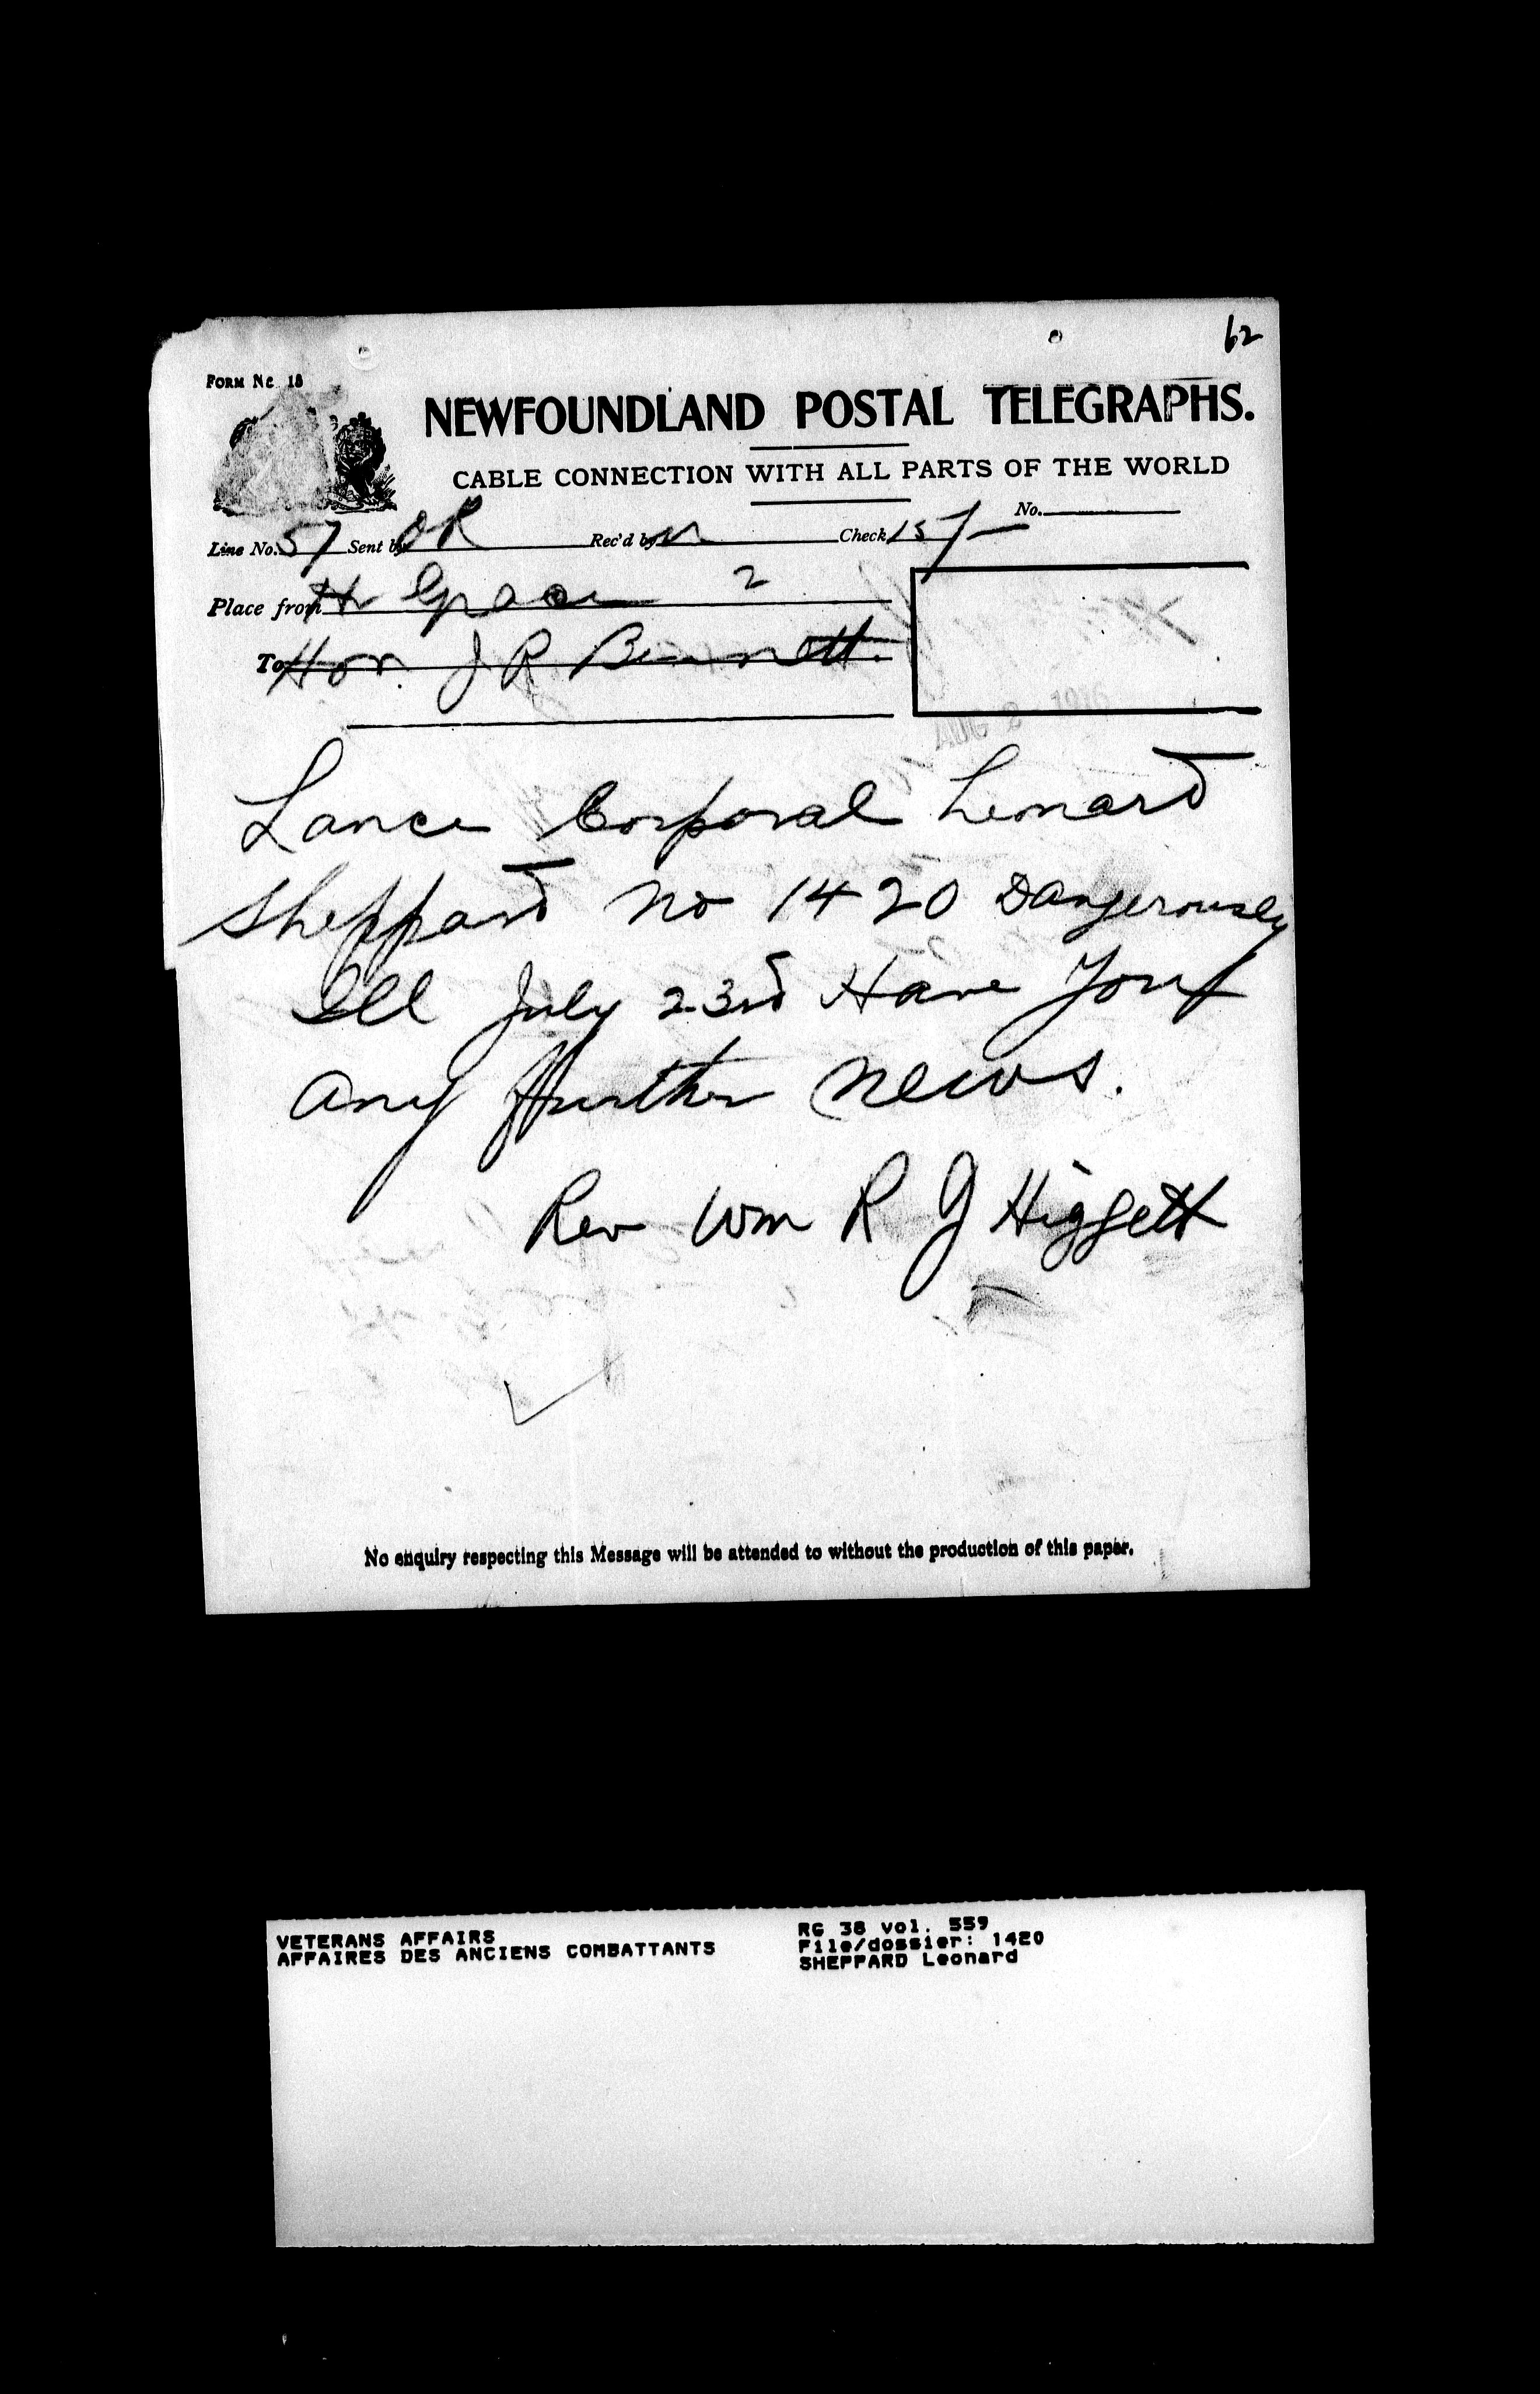 62
FORM No. 18
NEWFOUNDLAND POSTAL TELEGRAPHS.
CABLE CONNECTION WITH ALL PARTS OF THE WORLD
No.
Line No. 57 Sent by OR Rec'd by Check 15/-
Place from Hr Grace 2
To Hon. J R Bennett.
Lance Corporal Lenard
Sheppard No 1420 Dangerously
Ill July 23rd Have You
any further news.
Rev Wm R J Higgett
No enquiry respecting this Message will be attended to without the production of this paper.
VETERANS AFFAIRS
AFFAIRES DES ANCIENS COMBATTANTS
RG 38 vol. 559
File/dossier: 1420
SHEPPARD Leonard